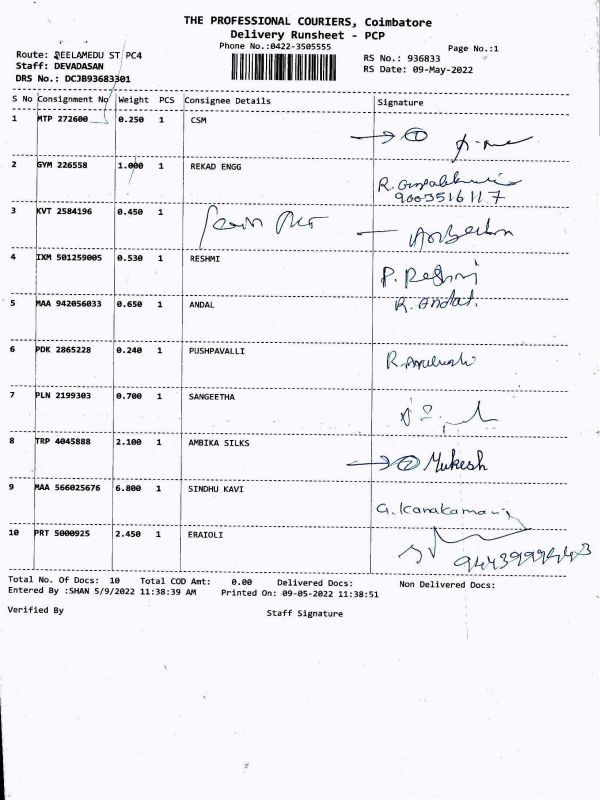 THE PROFESSIONAL COURIERS, Coimbatore
Delivery Runsheet - PCP
Phone No.:0422-3505555
Page No.:1
Route: PEELAMEDU ST PC4
Staff: DEVADASAN
DRS No.: DCJB93683301
RS No.: 936833
RS Date: 09-May-2022
S No Consignment No Weight PCS Consignee Details Signature
1 MTP 272600 0.250 1 CSM
2 GYM 226558 1.000 1 REKAD ENGG
9003516117
3 KVT 2584196 0.450 1
4 IXM 501259005 0.530 1 RESHMI P. Reshmi
5 MAA 942056033 0.650 1 ANDAL R. Andal.
6 PDK 2865228 0.240 1 PUSHPAVALLI
7 PLN 2199303 0.700 1 SANGEETHA
8 TRP 4045888 2.100 1 AMBIKA SILKS Mukesh
9 MAA 566025676 6.800 1 SINDHU KAVI
10 PRT 5000925 2.450 1 ERAIOLI
Total No. Of Docs: 10 Total COD Amt: 0.00 Delivered Docs: Non Delivered Docs:
Entered By :SHAN 5/9/2022 11:38:39 AM Printed On: 09-05-2022 11:38:51
Verified By Staff Signature